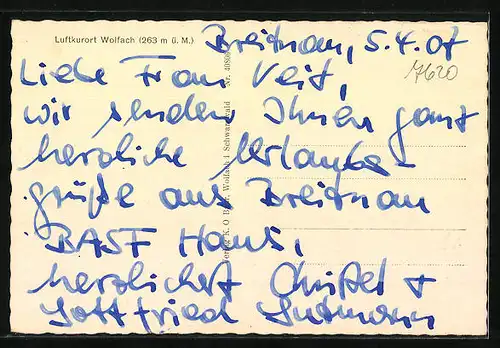 Luftkurort Wolfach (263 m ü. M.)
Breitnau, 5.4.07
7620
Liebe Frau Veit,
wir senden Ihnen ganz
herzliche Urlaubs-
grüße aus Breitnau
BASF Haus,
herzlichst Christel +
Gottfried Gutmann
Verlag K. O Wolfach i Schwarzwald Nr.